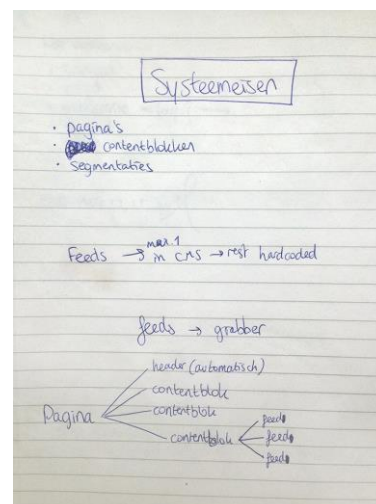 Systeemeisen
· pagina's
· contentblokken
· segmentaties
max. 1
Feeds → in CMS → rest hardcoded
feeds → grabber
header (automatisch)
contentblok
Pagina
contentblok
contentblok
feed
feed
feed